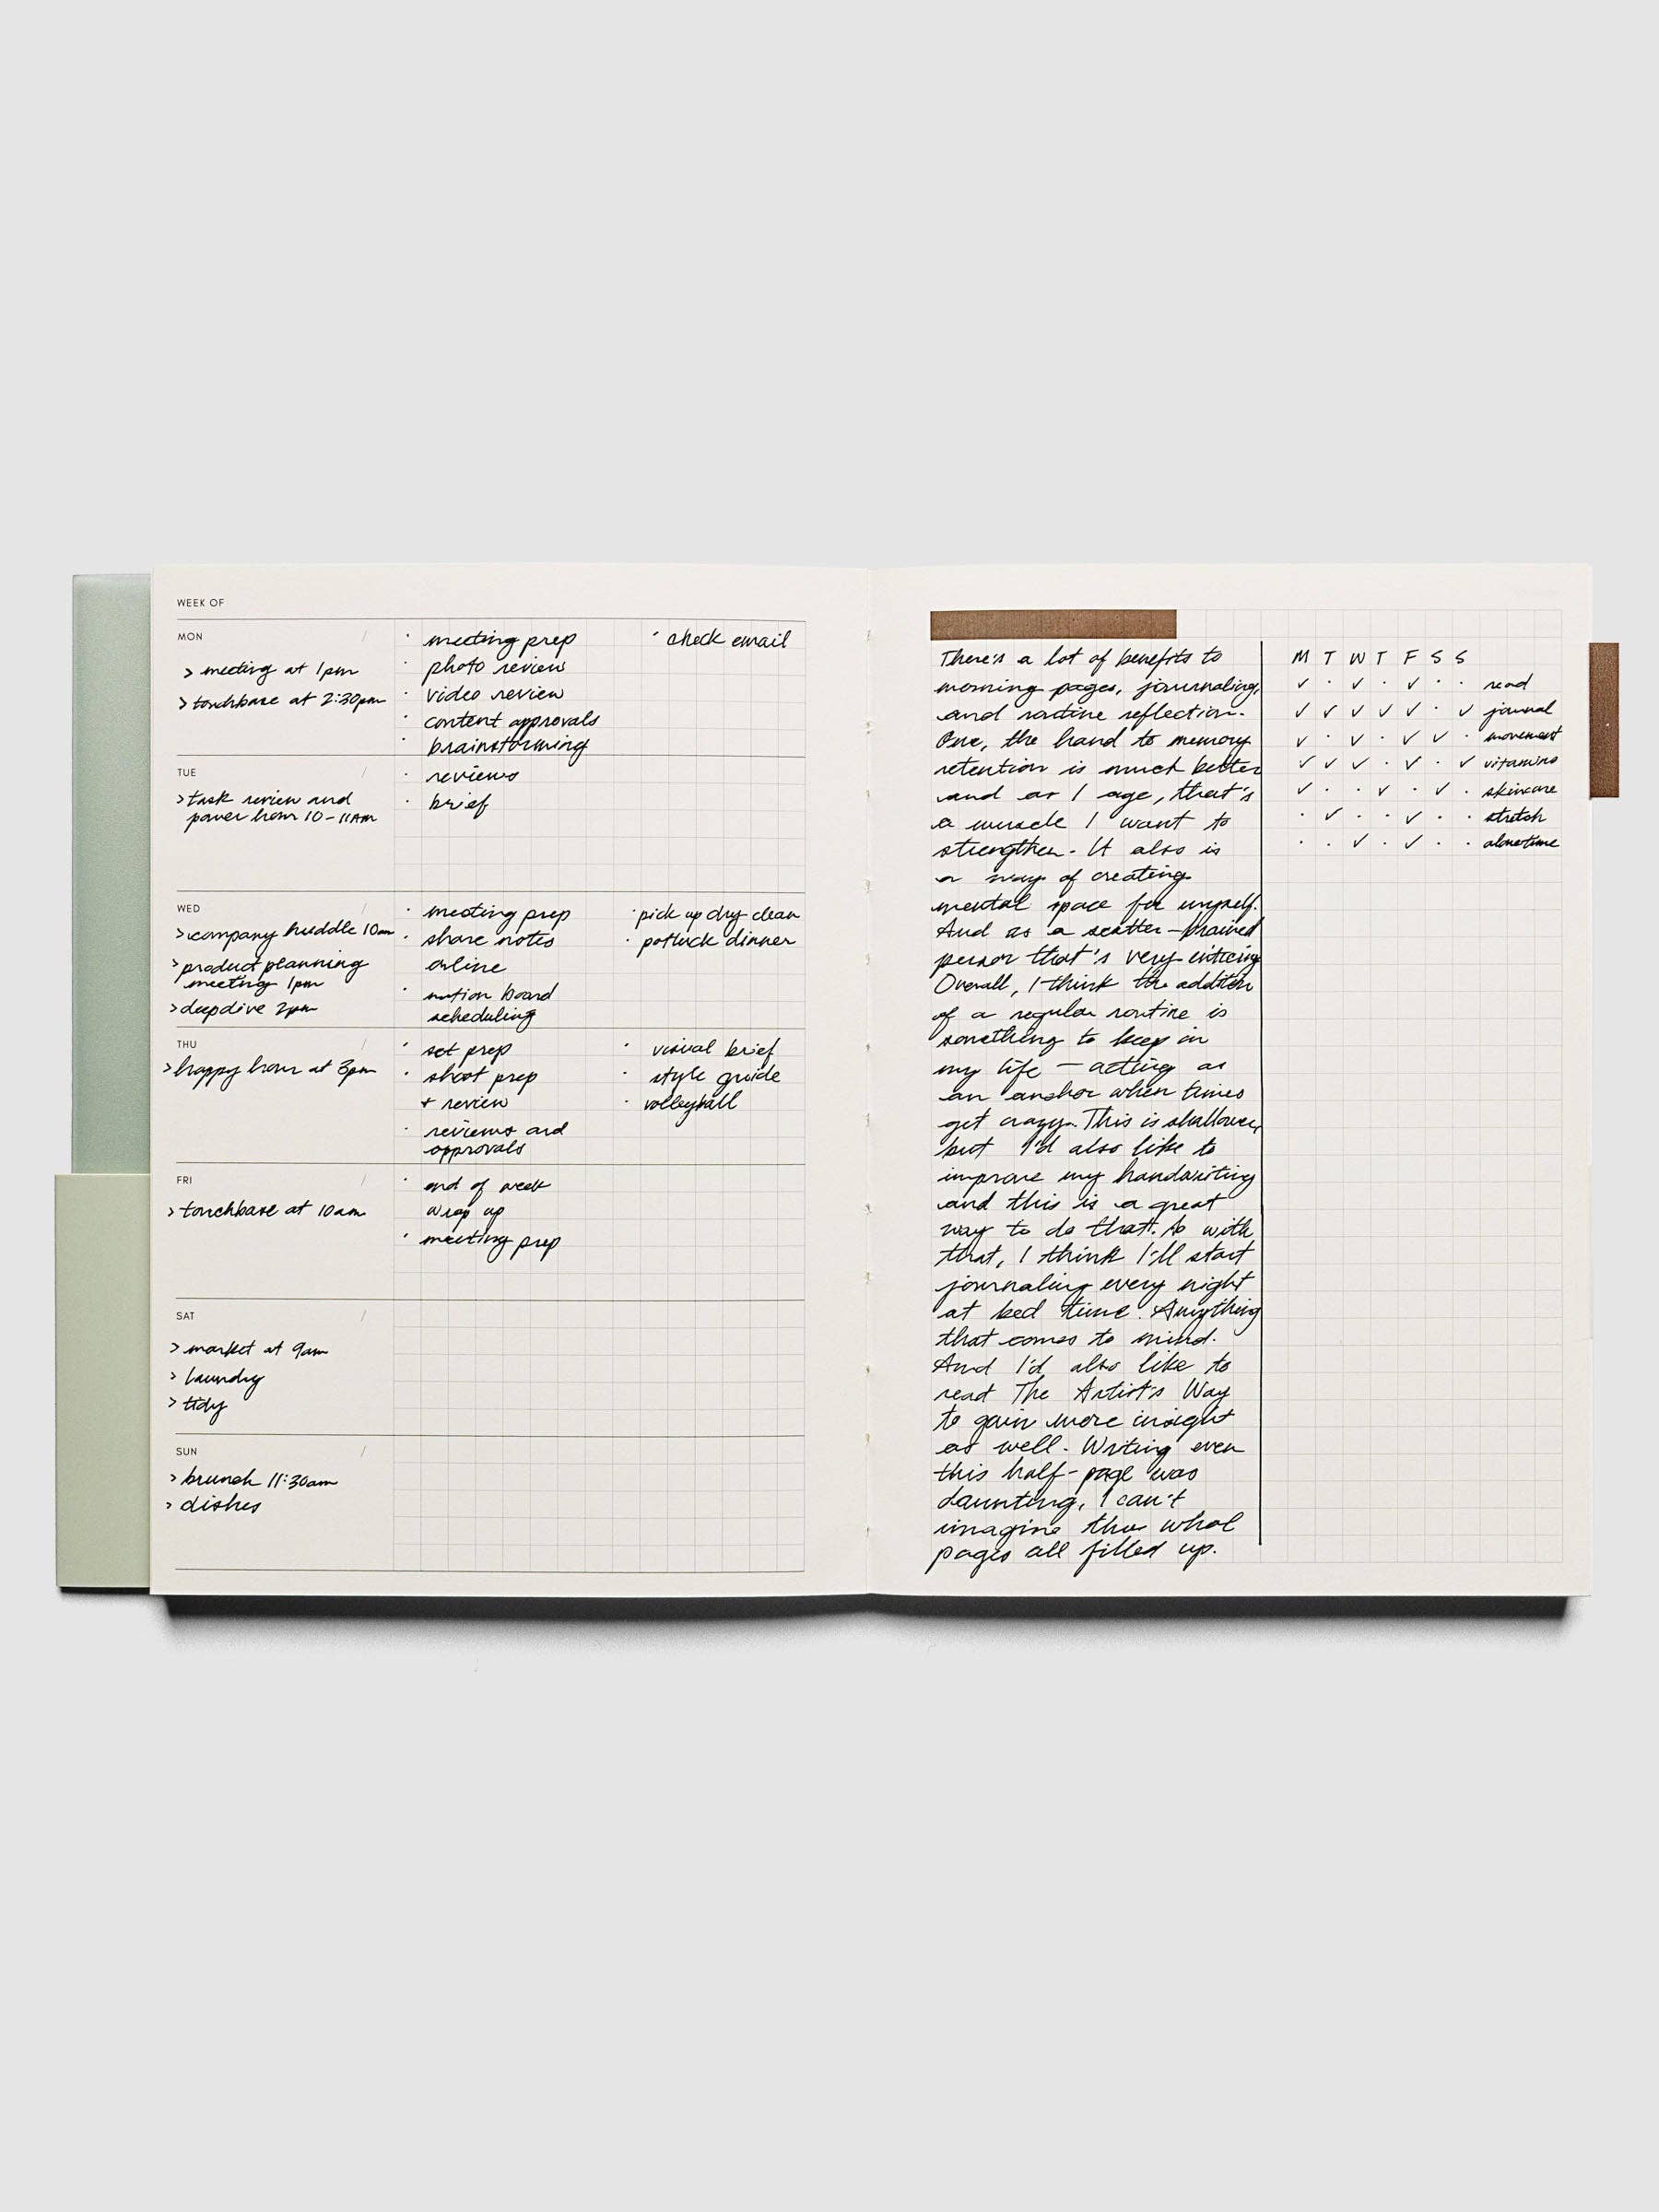 WEEK OF
MON /
> meeting at 1pm
> touchbase at 2:30pm
· meeting prep
· photo review
· video review
· content approvals
· brainstorming
· check email
TUE /
> task review and
power hour 10-11AM
· reviews
· brief
WED /
> company huddle 10am
> product planning
meeting 1pm
> deepdive 2pm
· meeting prep
· share notes
online
· notion board
scheduling
· pick up dry clean
· potluck dinner
THU /
> happy hour at 3pm
· set prep
· shoot prep
+ review
· reviews and
approvals
· visual brief
· style guide
· volleyball
FRI /
> touchbase at 10am
· end of week
wrap up
· meeting prep
SAT /
> market at 9am
> laundry
> tidy
SUN /
> brunch 11:30am
> dishes
There's a lot of benefits to
morning pages, journaling,
and routine reflection.
One, the hand to memory
retention is much better
and as I age, that's
a muscle I want to
strengthen. It also is
a way of creating
mental space for myself.
And as a scatter-brained
person that's very enticing
Overall, I think the addition
of a regular routine is
something to keep in
my life — acting as
an anchor when times
get crazy. This is shallower,
but I'd also like to
improve my handwriting
and this is a great
way to do that. So with
that, I think I'll start
journaling every night
at bed time. Anything
that comes to mind.
And I'd also like to
read The Artist's Way
to gain more insight
as well. Writing even
this half-page was
daunting, I can't
imagine three whol
pages all filled up.
M T W T F S S
✓ · ✓ · ✓ · · read
✓ ✓ ✓ ✓ ✓ · ✓ journal
✓ · ✓ · ✓ ✓ · movement
✓ ✓ ✓ · ✓ · ✓ vitamins
✓ · · ✓ · ✓ · skincare
· ✓ · · ✓ · · stretch
· · ✓ · ✓ · · alonetime